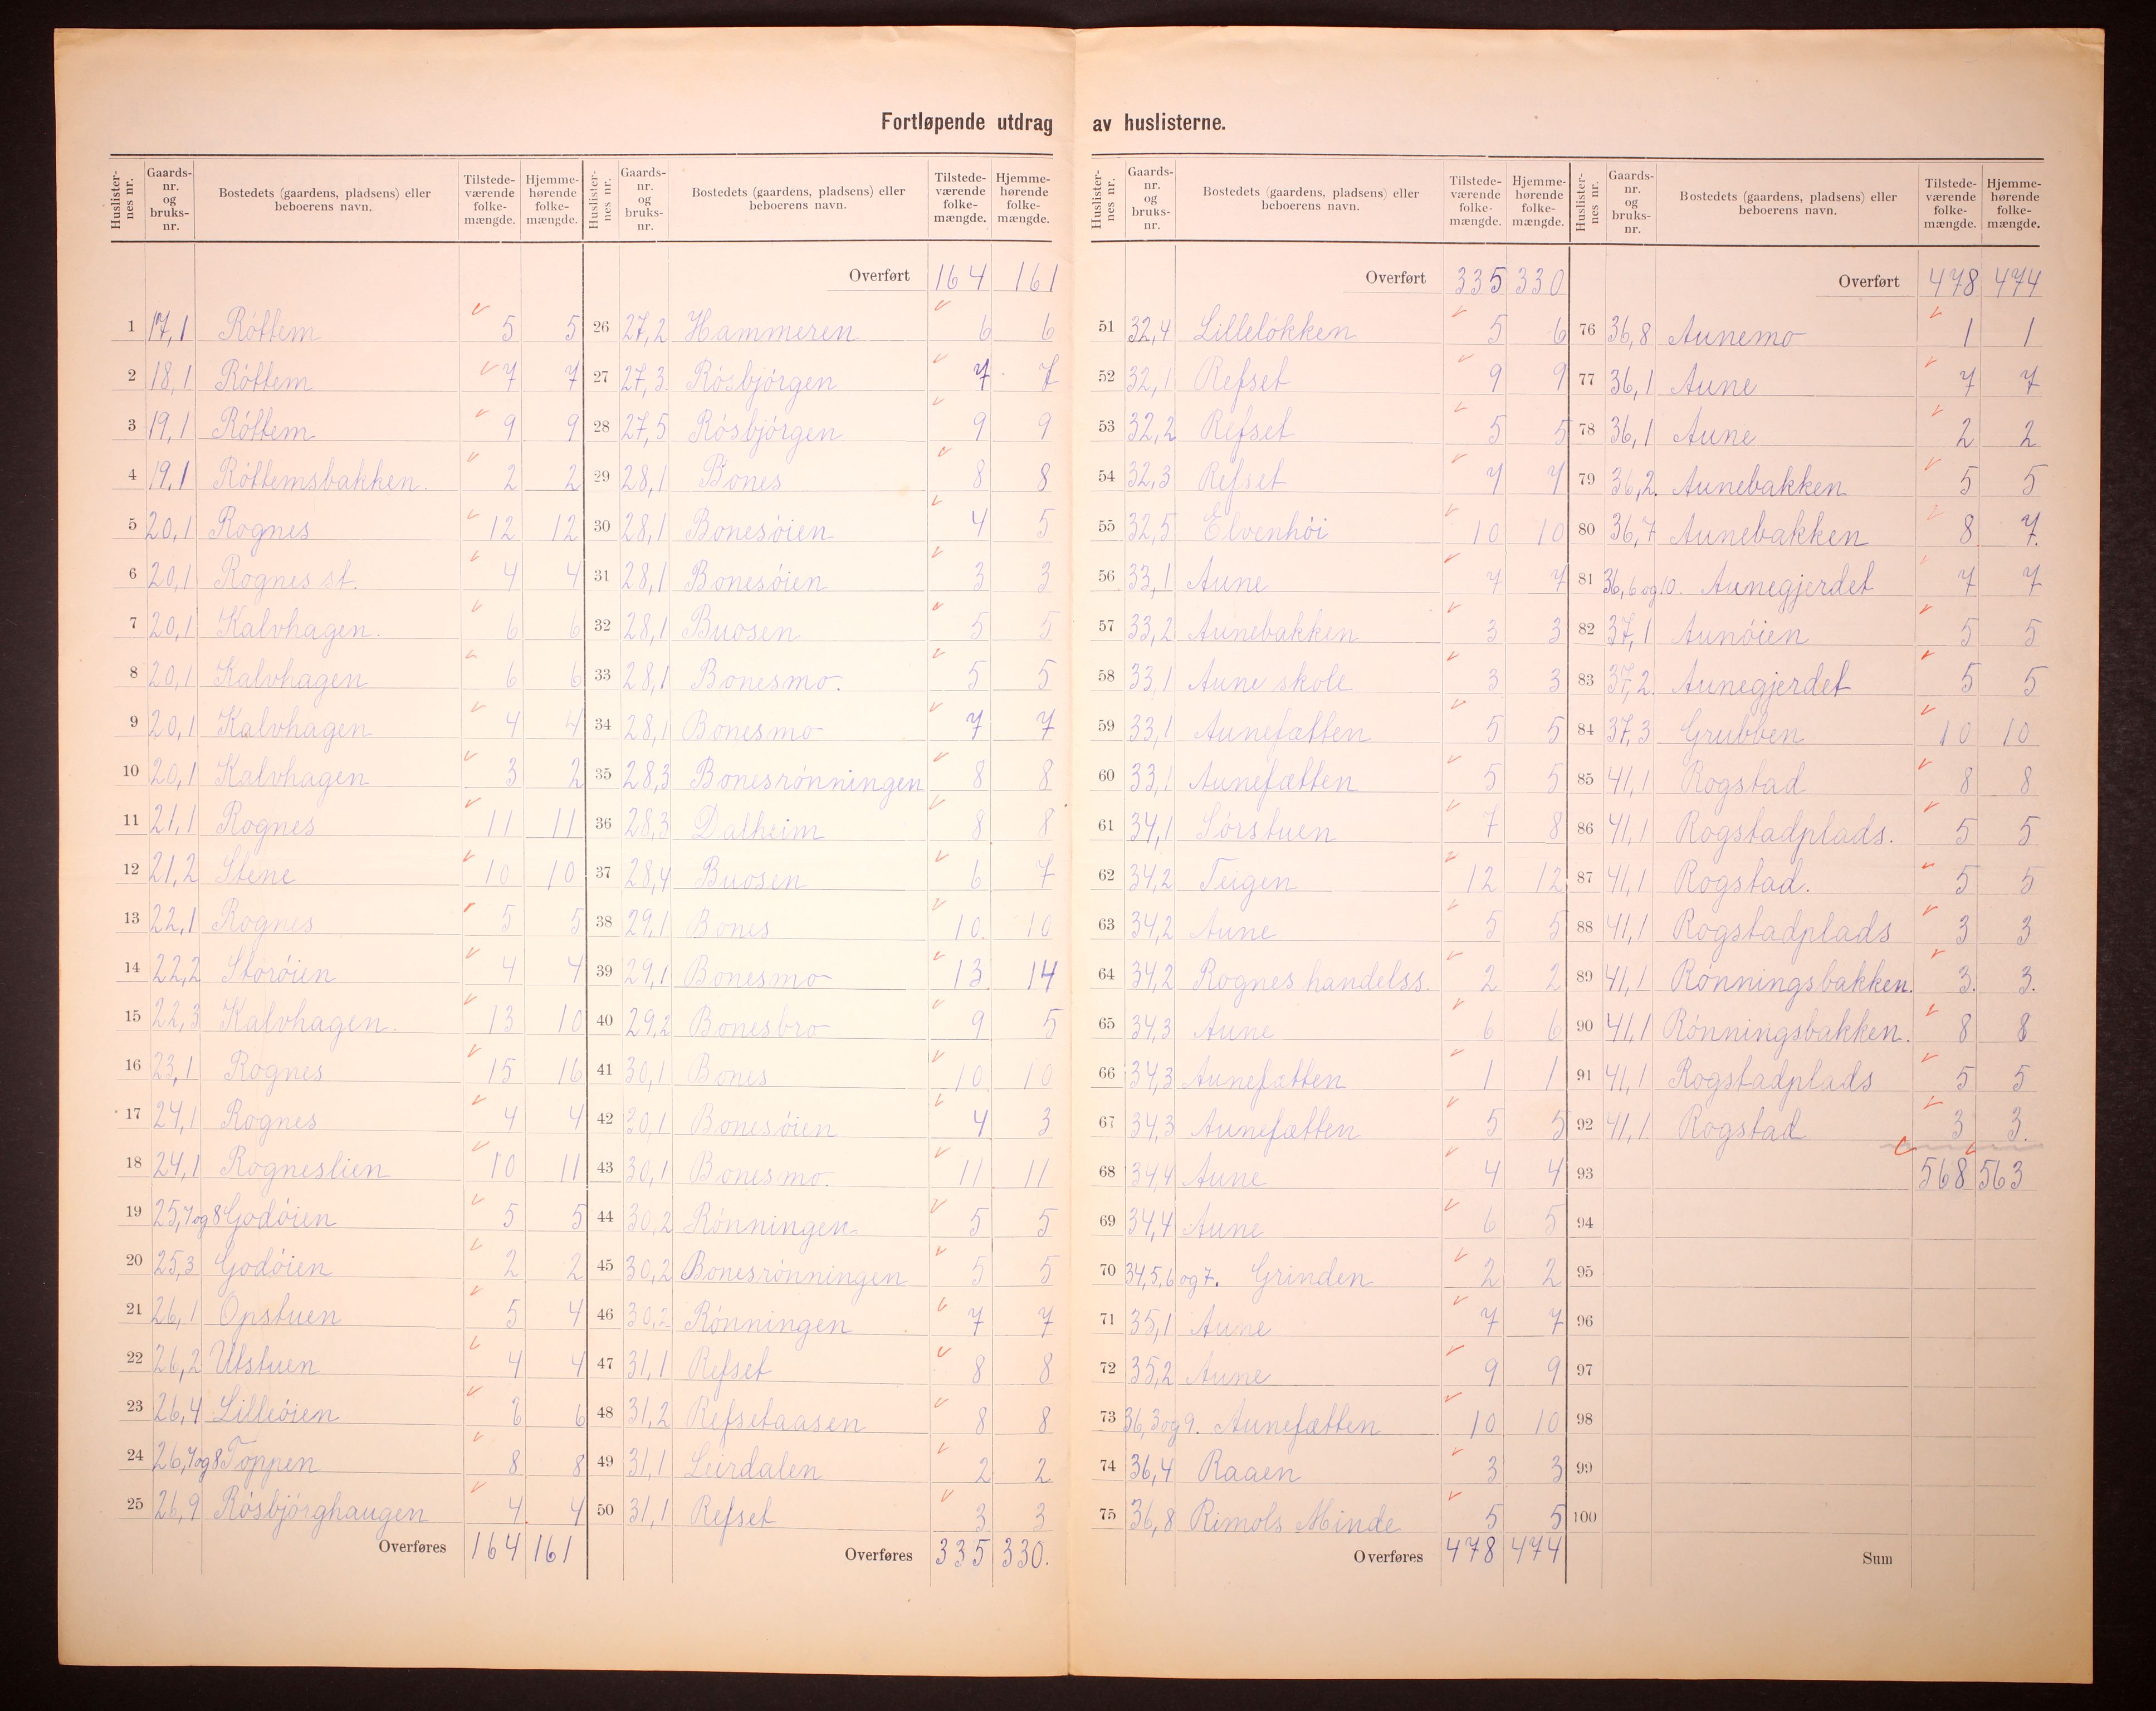 Fortløpende utdrag av huslisterne.
Huslisternes nr. | Gaards-nr. og bruks-nr. | Bostedets (gaardens, pladsens) eller beboerens navn. | Tilstedeværende folke-mængde. | Hjemmehørende folke-mængde.
1 17,1 Röttem 5 5
2 18,1 Röttem 7 7
3 19,1 Röttem 9 9
4 19,1 Röttemsbakken. 2 2
5 20,1 Rognes 12 12
6 20,1 Rognes st. 4 4
7 20,1 Kalvhagen. 6 6
8 20,1 Kalvhagen 6 6
9 20,1 Kalvhagen 4 4
10 20,1 Kalvhagen 3 2
11 21,1 Rognes 11 11
12 21,2 Stene 10 10
13 22,1 Rognes 5 5
14 22,2 Storöien 4 4
15 22,3 Kalvhagen. 13 10
16 23,1 Rognes 15 16
17 24,1 Rognes 4 4
18 24,1 Rogneslien 10 11
19 25,7og8 Godöien 5 5
20 25,3 Godöien 2 2
21 26,1 Opstuen 5 4
22 26,2 Utstuen 4 4
23 26,4 Lilleöien 6
24 26,7og8 Toppen 8 8
25 26,9 Rösbjörghaugen 4 4
Overføres 164 161
Huslisternes nr. | Gaards-nr. og bruks-nr. | Bostedets (gaardens, pladsens) eller beboerens navn. | Tilstedeværende folke-mængde. | Hjemmehørende folke-mængde.
Overført 164 161
26 27,2 Hammeren 6 6
27 27,3. Rösbjörgen 7 7
28 27,5 Rösbjörgen 9 9
29 28,1 Bones 8 8
30 28,1 Bonesöien 4 5
31 28,1 Bonesöien 3 3
32 28,1 Buosen 5 5
33 28,1 Bonesmo. 5 5
34 28,1 Bonesmo 7 7
35 28,3 Bonesrönningen 8 8
36 28,3 Dalheim 8 8
37 28,4 Buosen 6 7
38 29,1 Bones 10. 10
39 29,1 Bonesmo 13 14
40 29,2 Bonesbro 9 5
41 30,1 Bones 10 10
42 30,1 Bonesöien 4 3
43 30,1 Bonesmo. 11 11
44 30,2 Rönningen 5 5
45 30,2 Bonesrönningen 5 5
46 30,2 Rönningen 7 7
47 31,1 Refset 8 8
48 31,2 Refsetaasen 8 8
49 31,1 Leirdalen 2 2
50 31,1 Refset 3 3
Overføres 335 330.
Huslisternes nr. | Gaards-nr. og bruks-nr. | Bostedets (gaardens, pladsens) eller beboerens navn. | Tilstedeværende folke-mængde. | Hjemmehørende folke-mængde.
Overført 335 330
51 32,4 Lilleløkken 5 6
52 32,1 Refset 9 9
53 32,2 Refset 5 5
54 32,3 Refset 7 7
55 32,5 Elvenhöi 10 10
56 33,1 Aune 7 7
57 33,2 Aunebakken 3 3
58 33,1 Aune skole 3 3
59 33,1 Aunefætten 5 5
60 33,1 Aunefætten 5 5
61 34,1 Sörstuen 7 8
62 34,2 Teigen 12 12
63 34,2 Aune 5 5
64 34,2 Rognes handelss. 2 2
65 34,3 Aune 6 6
66 34,3 Aunefætten 1 1
67 34,3 Aunefætten 5 5
68 34,4 Aune 4 4
69 34,4 Aune 6 5
70 34,5,6 og 7. Grinden 2 2
71 35,1 Aune 7 7
72 35,2 Aune 9 9
73 36,3og9. Aunefætten 10 10
74 36,4 Raaen 3 3
75 36,8 Rimols Minde 5 5
Overføres 478 474
Huslisternes nr. | Gaards-nr. og bruks-nr. | Bostedets (gaardens, pladsens) eller beboerens navn. | Tilstedeværende folke-mængde. | Hjemmehørende folke-mængde.
Overført 478 474
76 36,8 Aunemo 1 1
77 36,1 Aune 7 7
78 36,1 Aune 2 2
79 36,2. Aunebakken 5 5
80 36,7 Aunebakken 8 7.
81 36,6 og 10. Aunegjerdet 7 7
82 37,1 Aunöien 5 5
83 37,2. Aunegjerdet 5 5
84 37,3 Grubben 10 10
85 41,1 Rogstad 8 8
86 41,1 Rogstadplads. 5 5
87 41,1 Rogstad. 5 5
88 41,1 Rogstadplads 3 3
89 41,1 Rönningsbakken. 3. 3.
90 41,1 Rönningsbakken. 8 8
91 41,1 Rogstadplads 5 5
92 41,1. Rogstad 3 3.
93 568 563
94
95
96
97
98
99
100
Sum